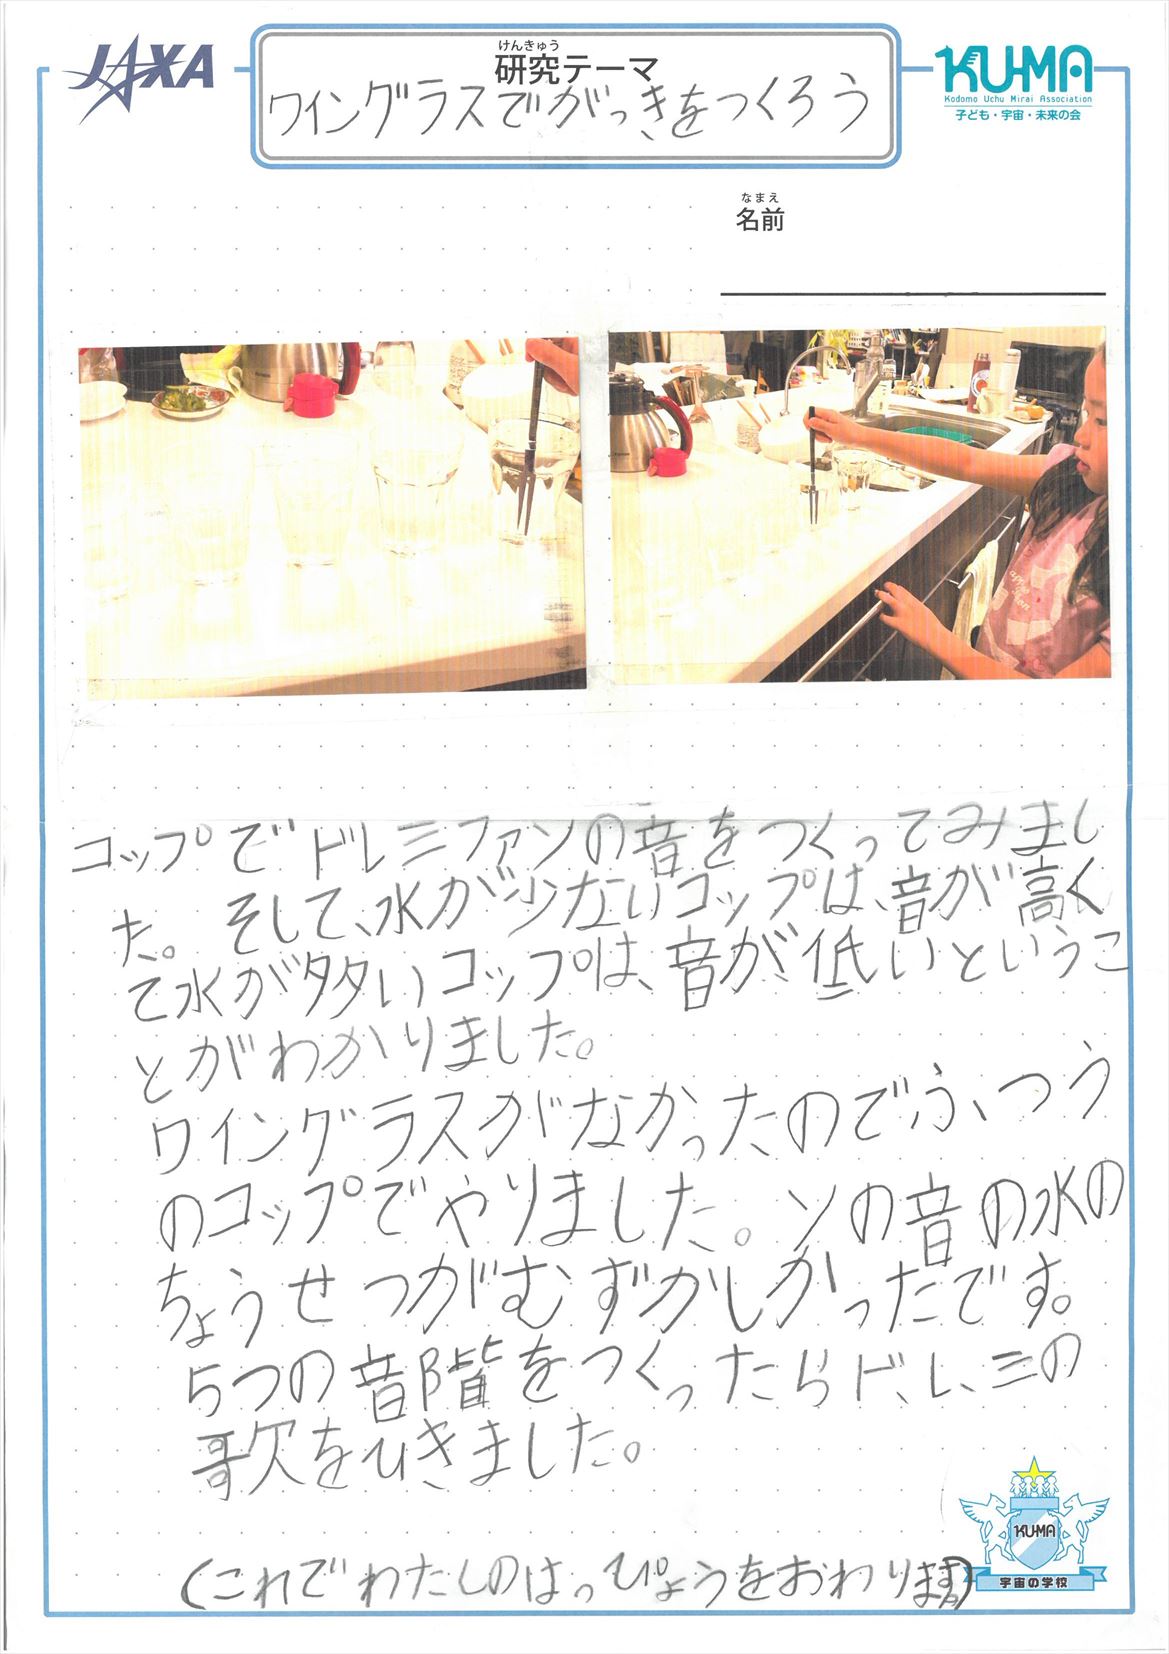 JAXA
けんきゅう
研究テーマ
ワイングラスでがっきをつくろう
KU-MA
Kodomo Uchu Mirai Association
子ども・宇宙・未来の会
なまえ
名前
コップでドレミファソの音をつくってみまし
た。そして、水が少ないコップは、音が高く
て水が多いコップは、音が低いというこ
とがわかりました。
ワイングラスがなかったのでふ、つう
のコップでやりました。ソの音の水の
ちょうせつがむずかしかったです。
5つの音階をつくったらド、レ、ミの
歌をひきました。
(これでわたしのはっぴょうをおわります)
KU-MA
宇宙の学校